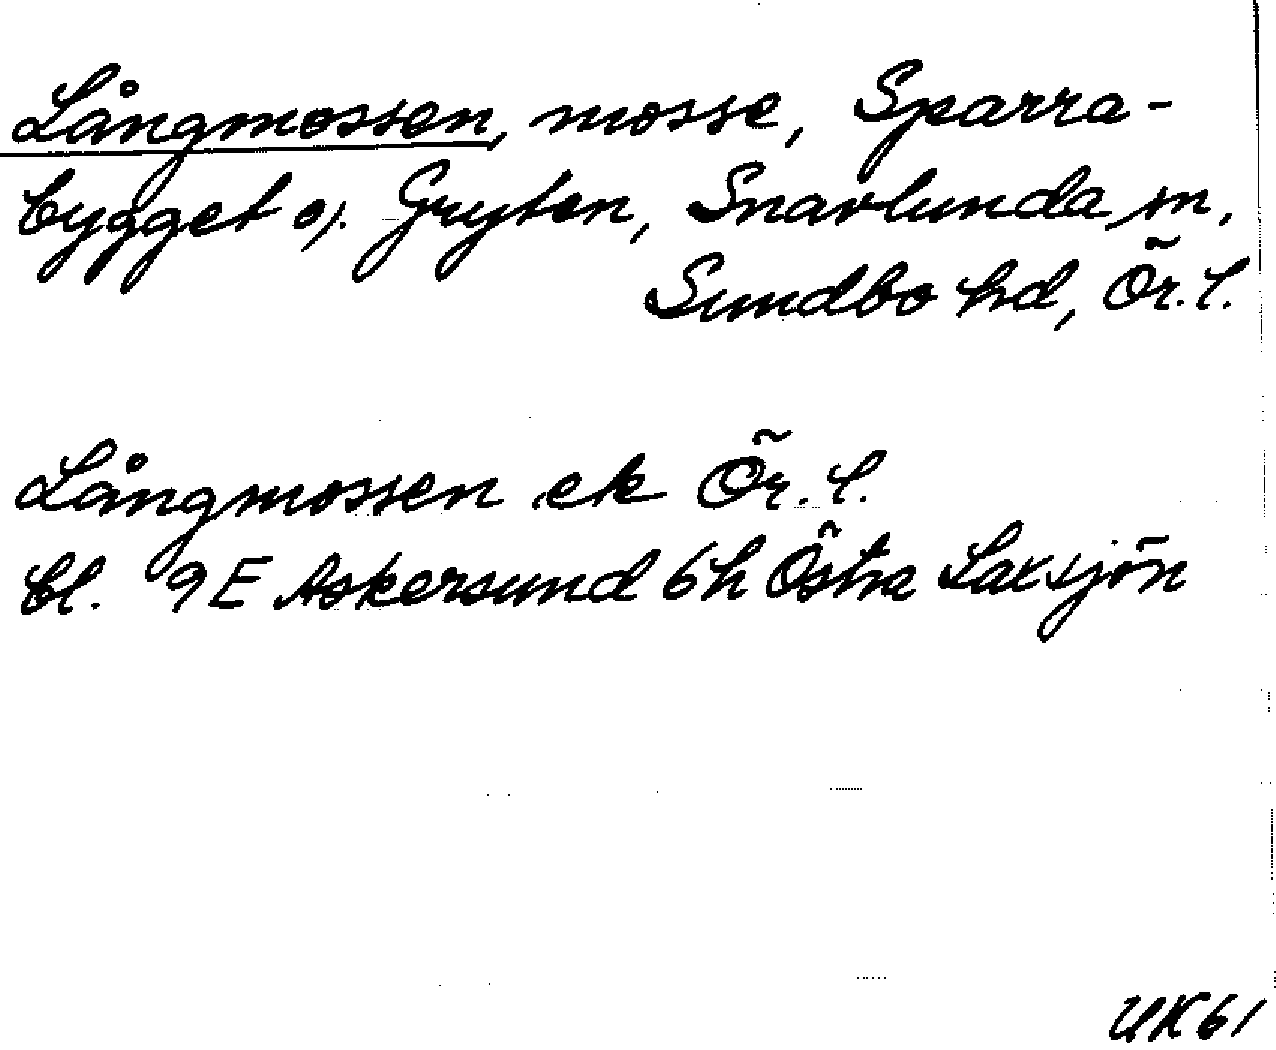 Långmossen, mosse, Sparra-
bygget o. Gryten, Snavlunda sn,
Sundbo hd, Ör. l.
Långmossen ek Ör. l.
bl. 9E Askersund 6h Östra Laxsjön
UK61